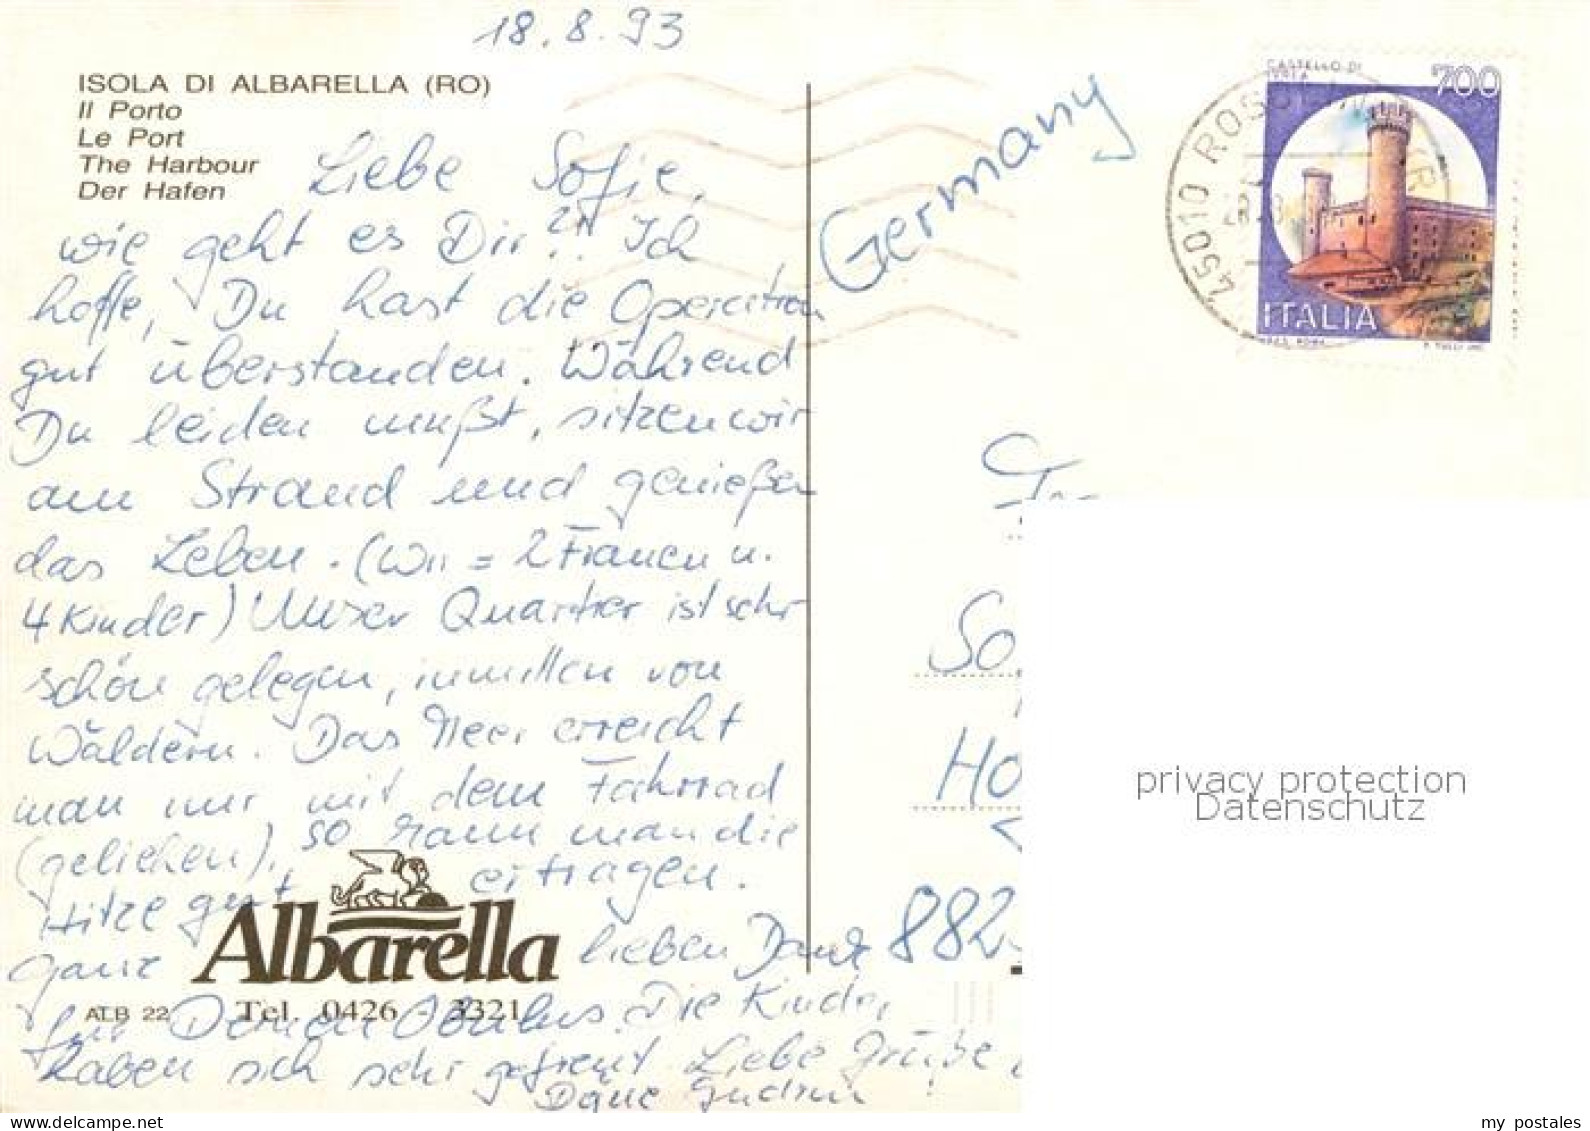 18.8.93
ISOLA DI ALBARELLA (RO)
Il Porto
Le Port
The Harbour
Der Hafen
Liebe Sofie,
wie geht es Dir? Ich
hoffe, Du hast die Operation
gut überstanden. Während
Du leiden mußt, sitzen wir
am Strand und genießen
das Leben. (Wir = 2 Frauen u.
4 Kinder) Unser Quartier ist sehr
schön gelegen, inmitten von
Wäldern. Das Meer erreicht
man nur mit dem Fahrrad
(geliehen), so kann man die
Hitze gut ertragen.
Ganz lieben Dank
für Deinen. Die Kinder
haben sich sehr gefreut. Liebe Grüße
Deine Gudrun
Albarella
ALB 22
Tel. 0426 - 3321
Germany
CASTELLO DI
IVREA
700
ITALIA
45010 ROS
So
Ho
882
privacy protection
Datenschutz
my postales